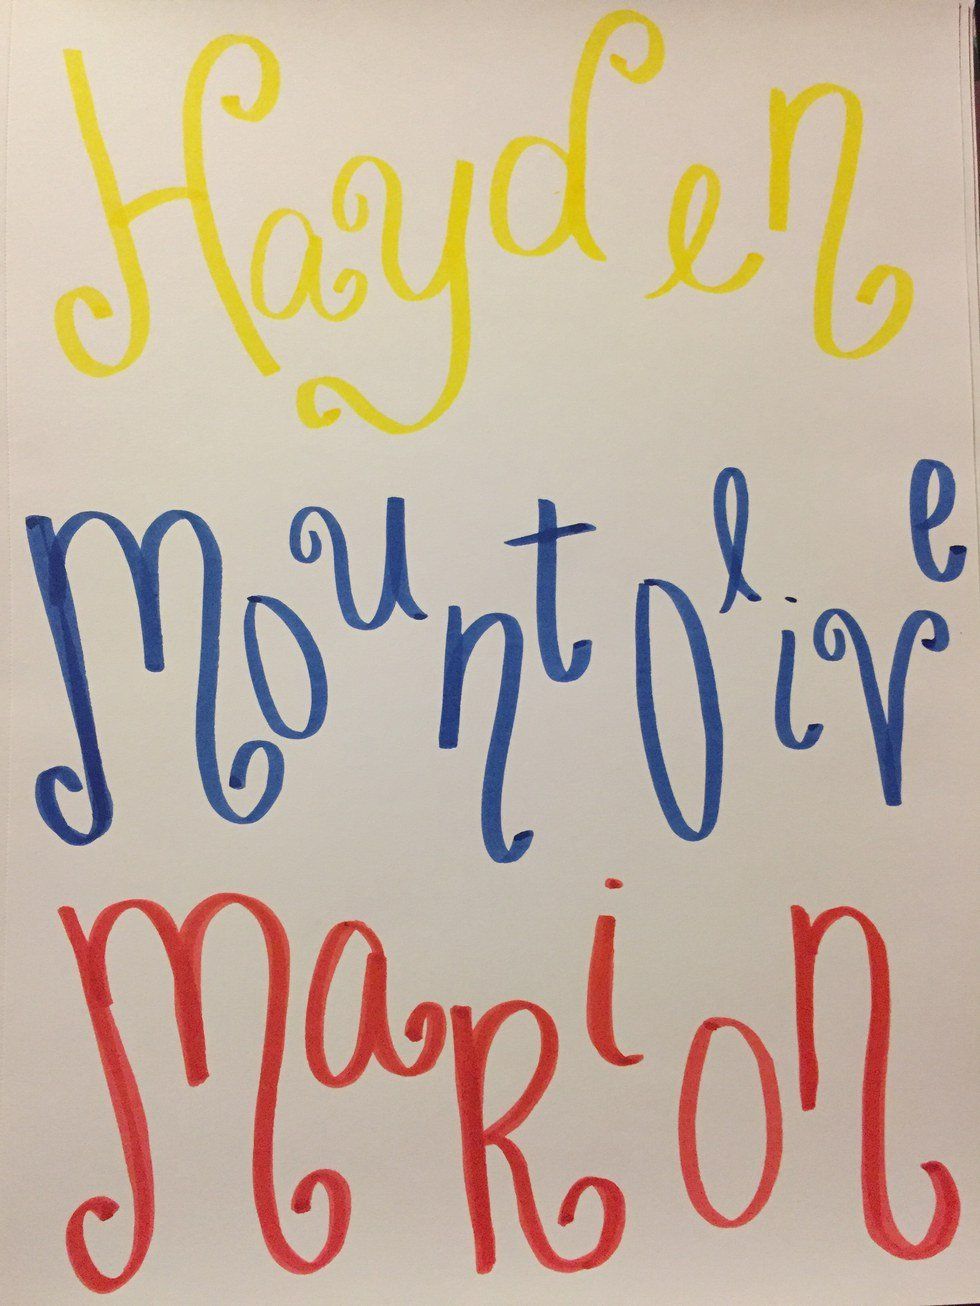 Hayden
Mount Olive
Marion